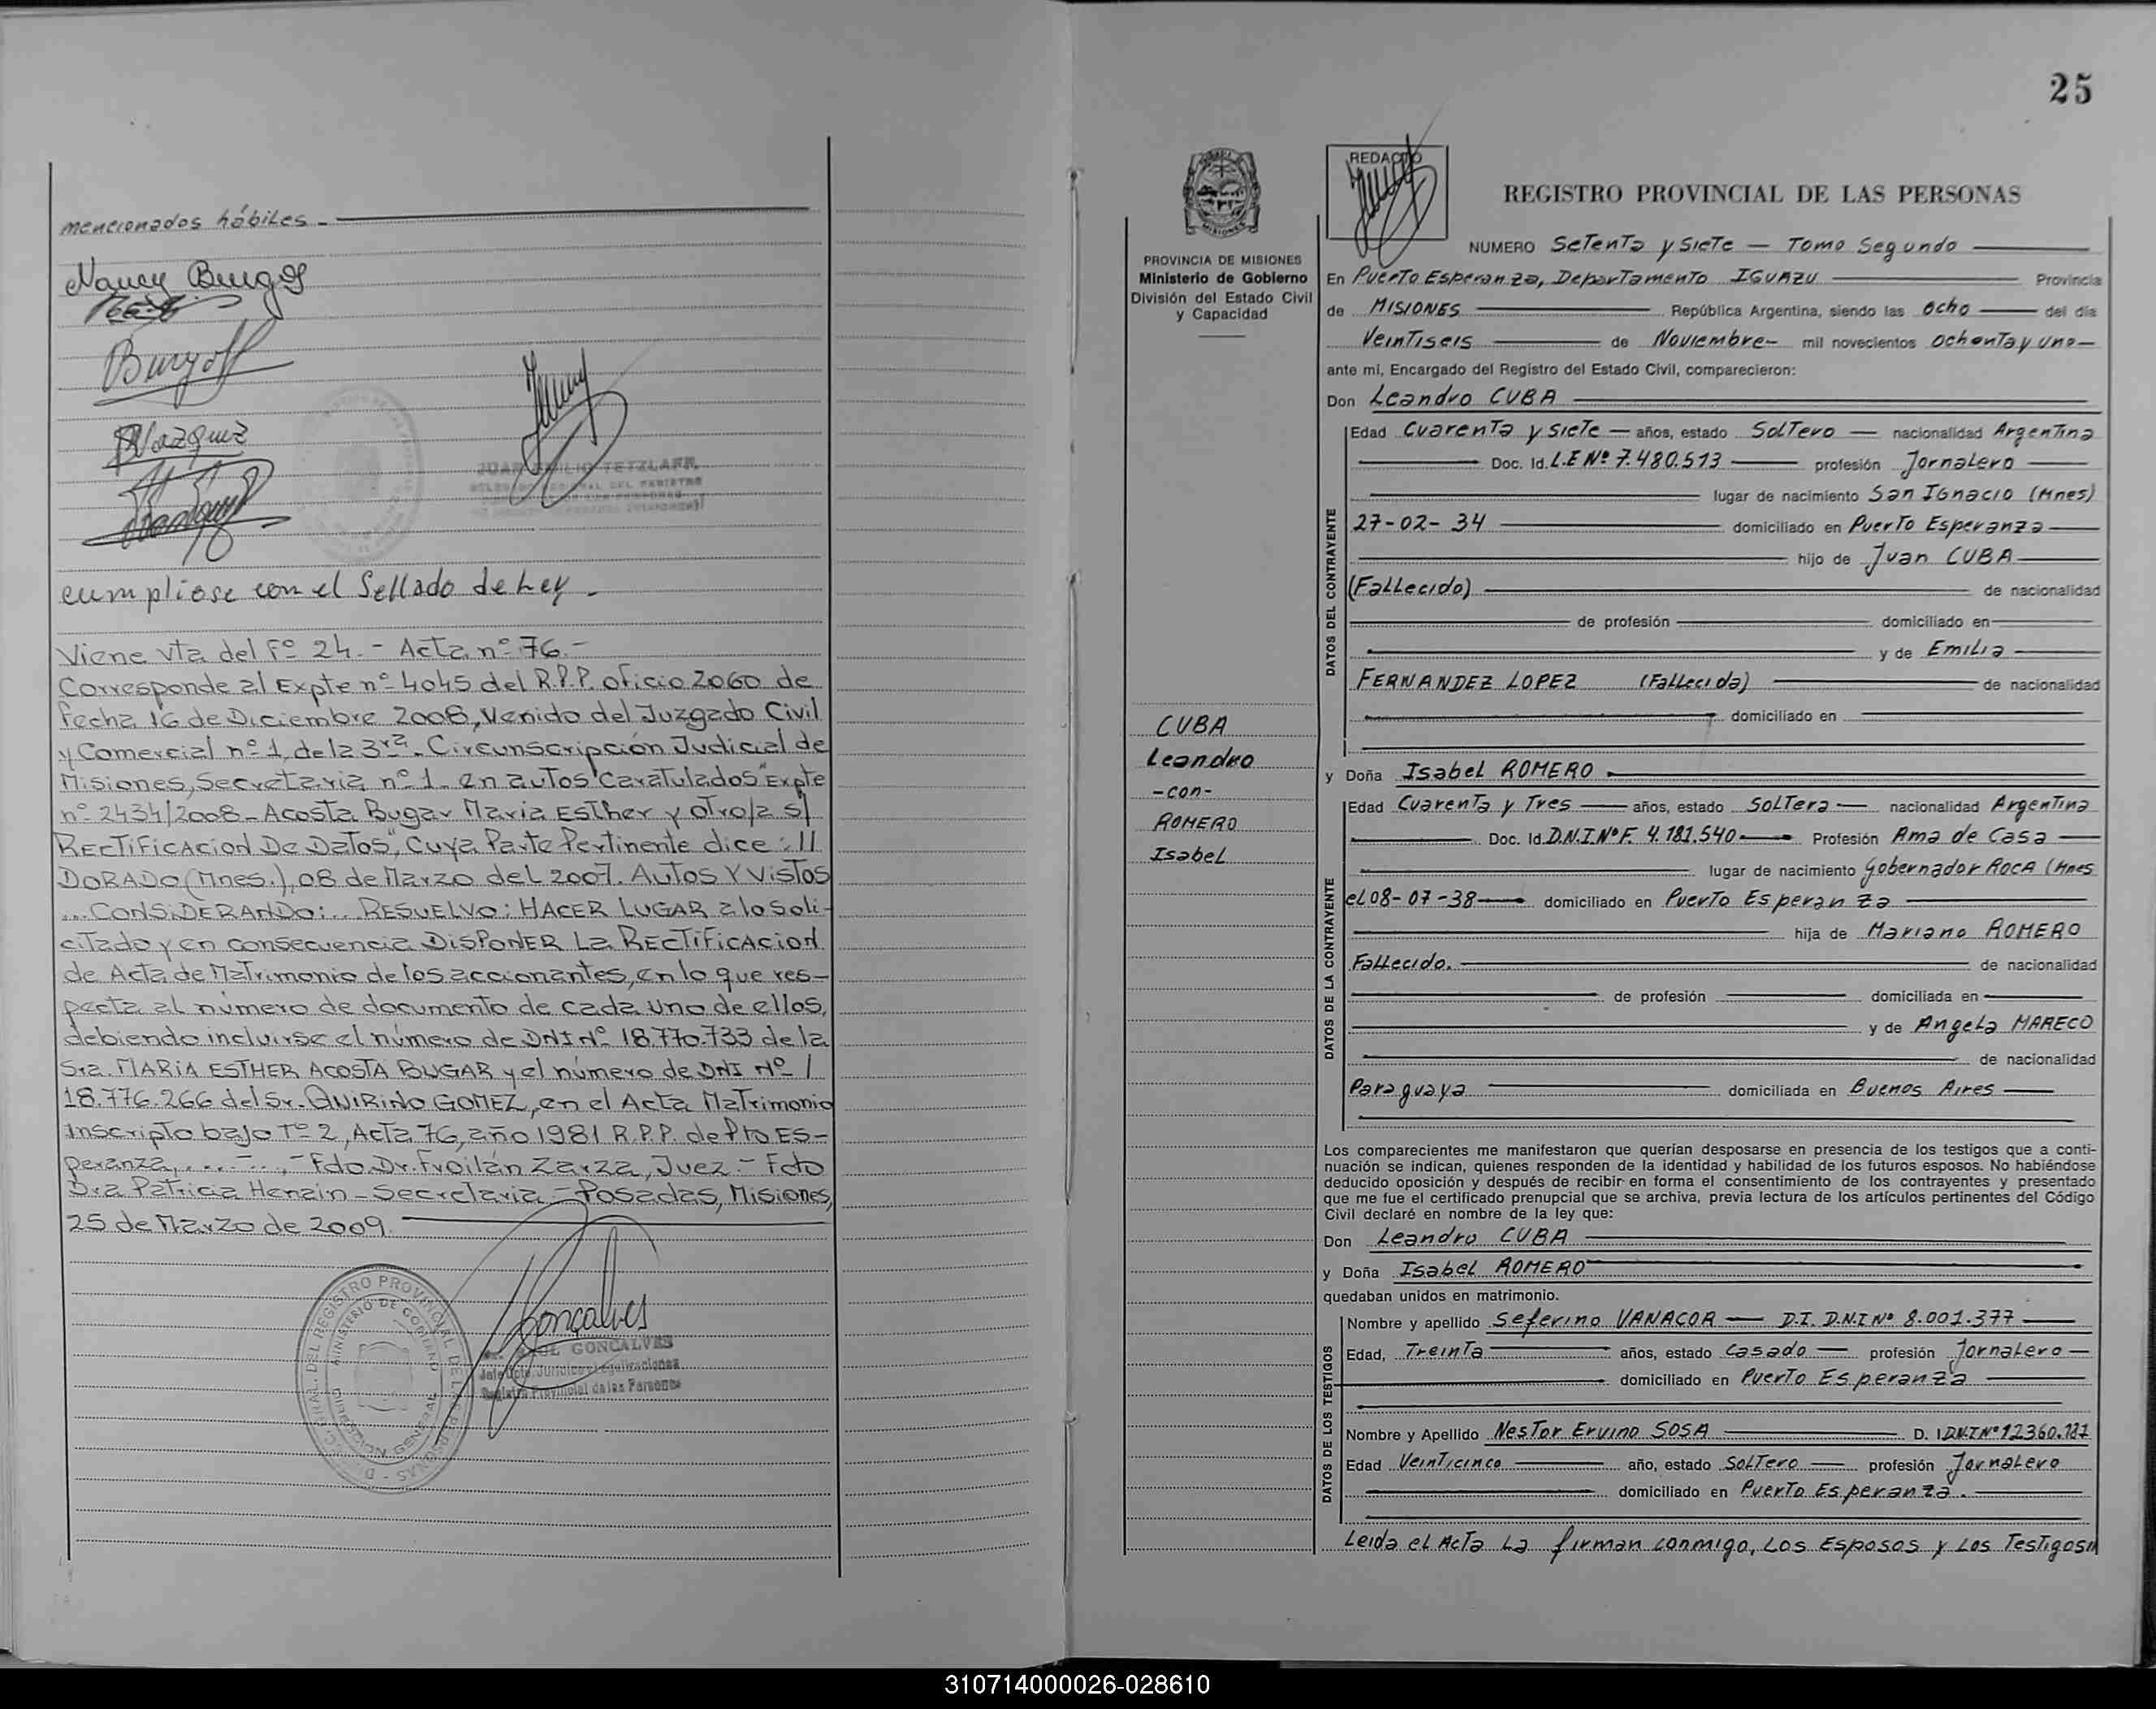 mencionados hábiles -
Nancy Burgos
Burgoff
Vazquez
JUAN EMILIO TETZLAFF
cumpliose con el Sellado de Ley -
Viene vta del Fº 24. - Acta nº 76. -
Corresponde al Expte nº 4045 del R.P.P. oficio 2060 de
fecha 16 de Diciembre 2008, Venido del Juzgado Civil
y Comercial nº 1, de la 3ra. Circunscripción Judicial de
Misiones, Secretaria nº 1. en autos Caratulados "Expte
nº 2434/2008 - Acosta Bugar Maria Esther y otro/a s/
RECTIFICACION De Datos", Cuya Parte Pertinente dice: ll
DORADO (Mnes.), 08 de Marzo del 2007. AUTOS Y VISTOS
... CONSIDERANDO: .. RESUELVO: HACER LUGAR a lo Soli-
citado y en consecuencia DISPONER La RECTIFICACION
de Acta de Matrimonio de los accionantes, en lo que res-
pecta al número de documento de cada uno de ellos,
debiendo incluirse el número de DNI Nº 18.770.733 de la
Sra. MARIA ESTHER ACOSTA BUGAR y el número de DNI Nº /
18.776.266 del Sr. QUIRINO GOMEZ, en el Acta Matrimonio
inscripto bajo Tº 2, Acta 76, año 1981 R.P.P. de Pto Es-
peranza, .... - .., - Fdo Dr. Froilán Zarza, Juez. - Fdo
Dra Patricia Henain - Secretaria - Posadas, Misiones,
25 de Marzo de 2009.
Gonçalves
GONCALVES
Registro Provincial de las Personas
25
REDACTO
REGISTRO PROVINCIAL DE LAS PERSONAS
PROVINCIA DE MISIONES
Ministerio de Gobierno
División del Estado Civil
y Capacidad
CUBA
Leandro
-con-
ROMERO
Isabel
NUMERO Setenta y siete - Tomo Segundo
En Puerto Esperanza, Departamento IGUAZU Provincia
de MISIONES República Argentina, siendo las ocho del día
Veintiseis de Noviembre - mil novecientos ochenta y uno -
ante mi, Encargado del Registro del Estado Civil, comparecieron:
Don Leandro CUBA
DATOS DEL CONTRAYENTE
Edad Cuarenta y siete - años, estado Soltero - nacionalidad Argentina
Doc. Id. L.E Nº 7.480.513 profesión Jornalero
lugar de nacimiento San Ignacio (Mnes)
27-02-34 domiciliado en Puerto Esperanza
hijo de Juan CUBA
(Fallecido) de nacionalidad
de profesión domiciliado en
y de Emilia
FERNANDEZ LOPEZ (Fallecida) de nacionalidad
domiciliado en
y Doña Isabel ROMERO
DATOS DE LA CONTRAYENTE
Edad Cuarenta y Tres años, estado Soltera - nacionalidad Argentina
Doc. Id. D.N.I. Nº F. 4.181.540 Profesión Ama de Casa
lugar de nacimiento Gobernador ROCA (Mnes
el 08-07-38 domiciliado en Puerto Esperanza
hija de Mariano ROMERO
Fallecido. de nacionalidad
de profesión domiciliada en
y de Angela MARECO
de nacionalidad
Paraguaya domiciliada en Buenos Aires
Los comparecientes me manifestaron que querían desposarse en presencia de los testigos que a conti-
nuación se indican, quienes responden de la identidad y habilidad de los futuros esposos. No habiéndose
deducido oposición y después de recibir en forma el consentimiento de los contrayentes y presentado
que me fue el certificado prenupcial que se archiva, previa lectura de los artículos pertinentes del Código
Civil declaré en nombre de la ley que:
Don Leandro CUBA
y Doña Isabel ROMERO
quedaban unidos en matrimonio.
DATOS DE LOS TESTIGOS
Nombre y apellido Seferino VANACOR - D.I. D.N.I Nº 8.001.377
Edad, Treinta años, estado Casado profesión Jornalero -
domiciliado en Puerto Esperanza
Nombre y Apellido Nestor Ervino SOSA D. I D.N.I Nº 12360.187
Edad Veinticinco año, estado Soltero profesión Jornalero
domiciliado en Puerto Esperanza.
Leida el Acta La firman conmigo, Los Esposos y Los Testigos//
310714000026-028610